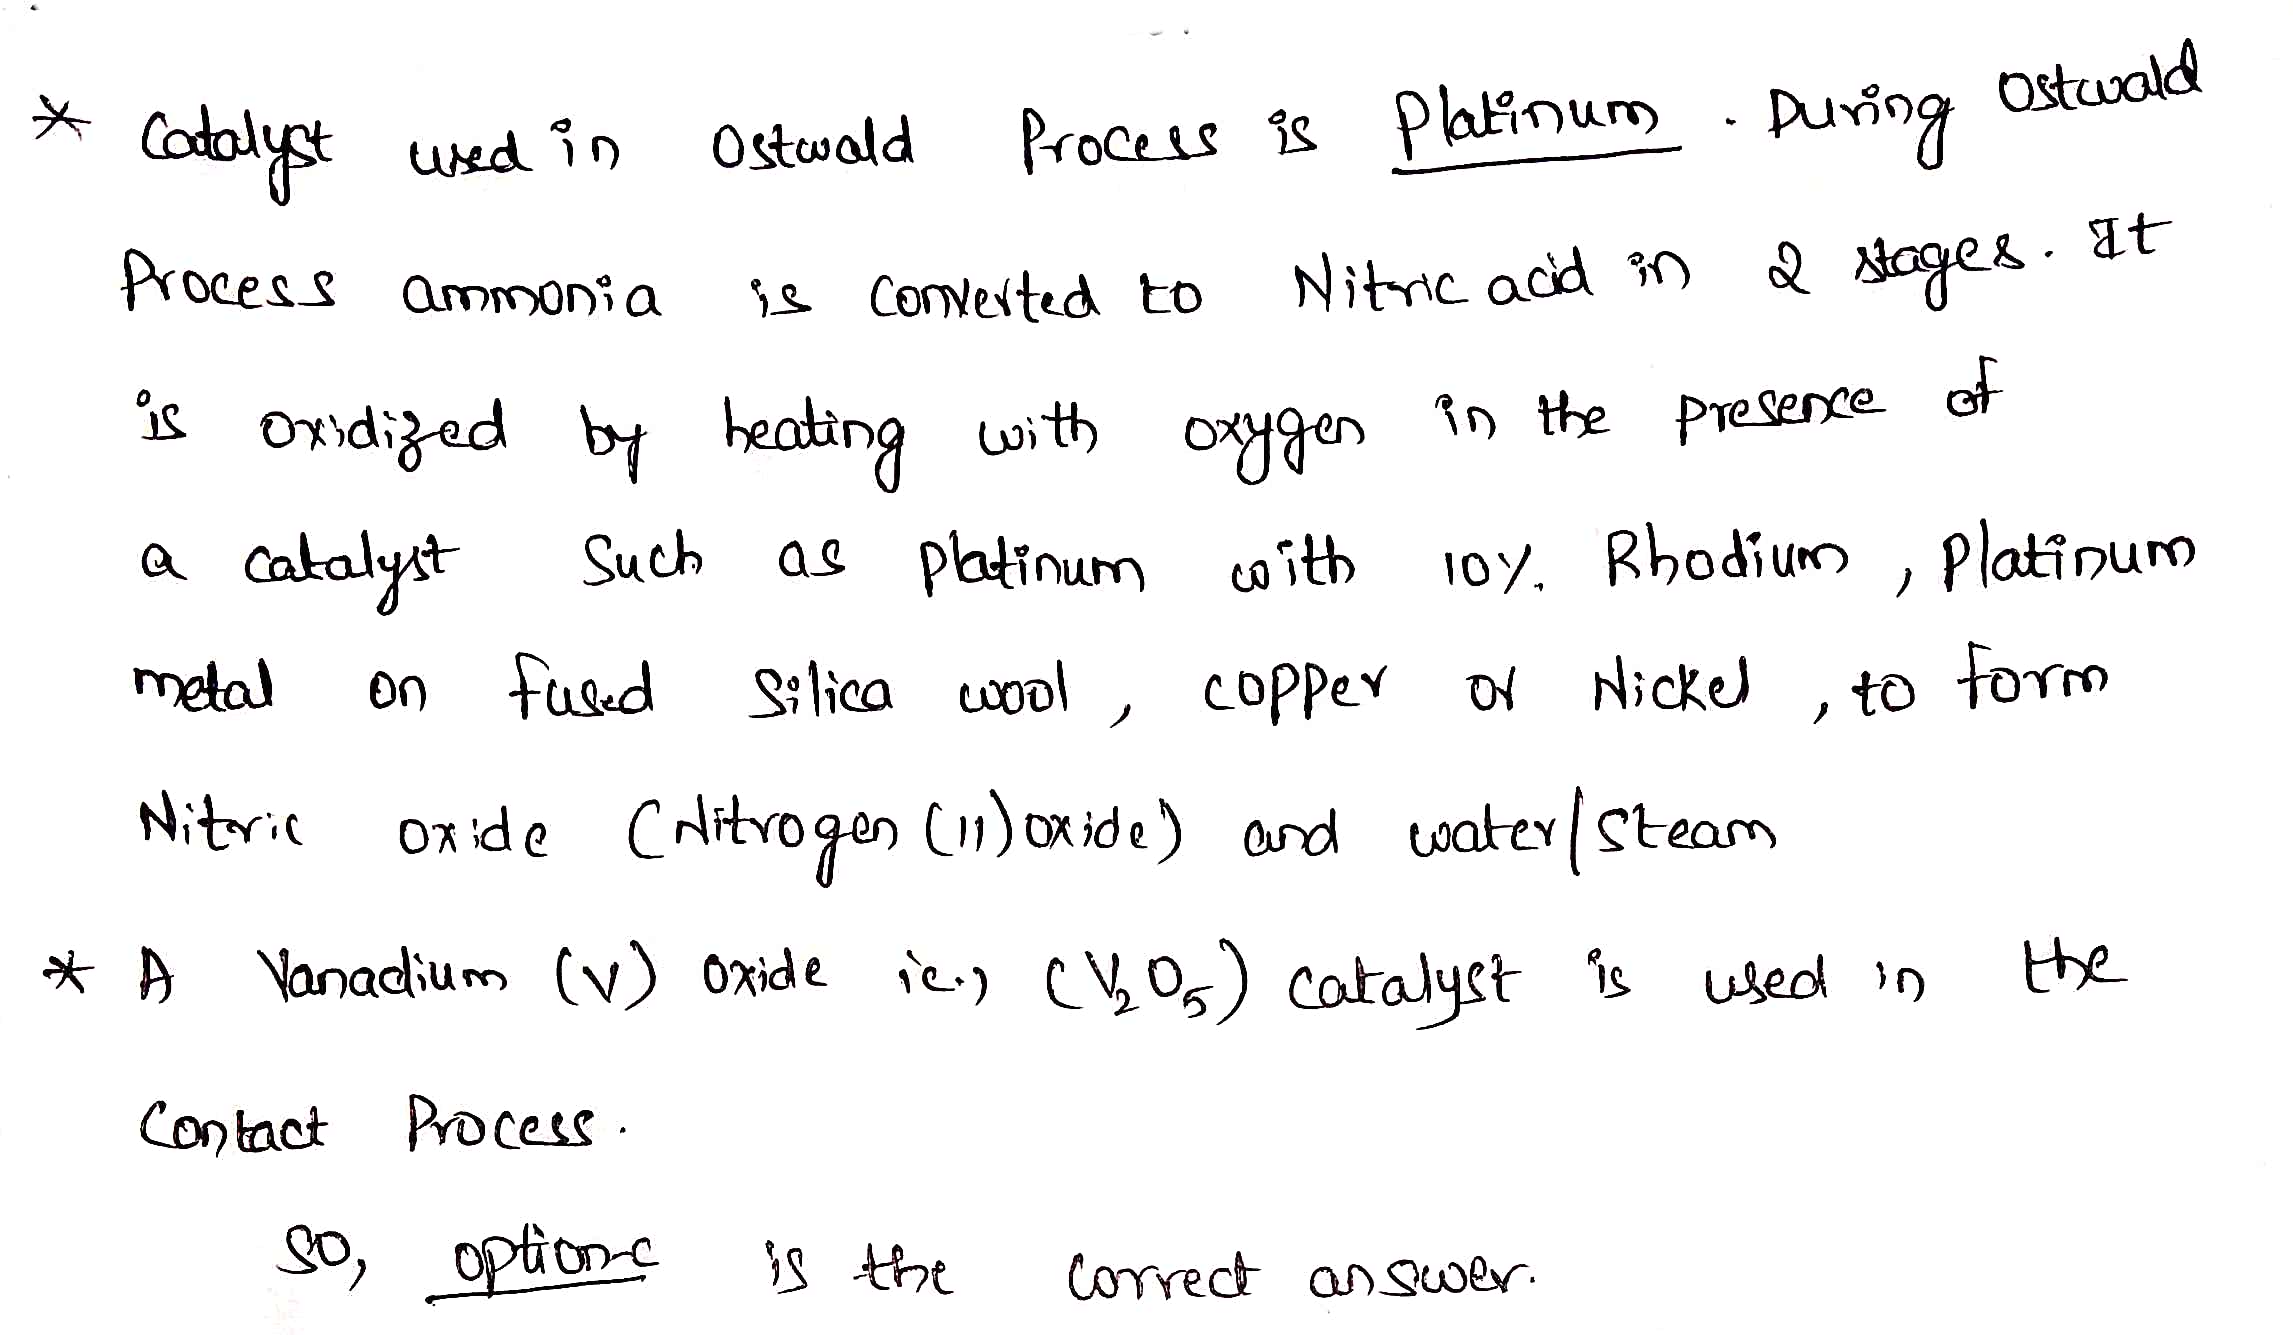 * Catalyst used in Ostwald Process is Platinum. During Ostwald
Process ammonia is converted to Nitric acid in 2 stages. It
is oxidized by heating with oxygen in the presence of
a catalyst such as platinum with 10% Rhodium, Platinum
metal on fused silica wool, copper or Nickel, to form
Nitric oxide (Nitrogen (11) oxide) and water/steam
* A Vanadium (V) oxide ie., (V₂O₅) catalyst is used in the
Contact Process.
So, option-c is the correct answer.